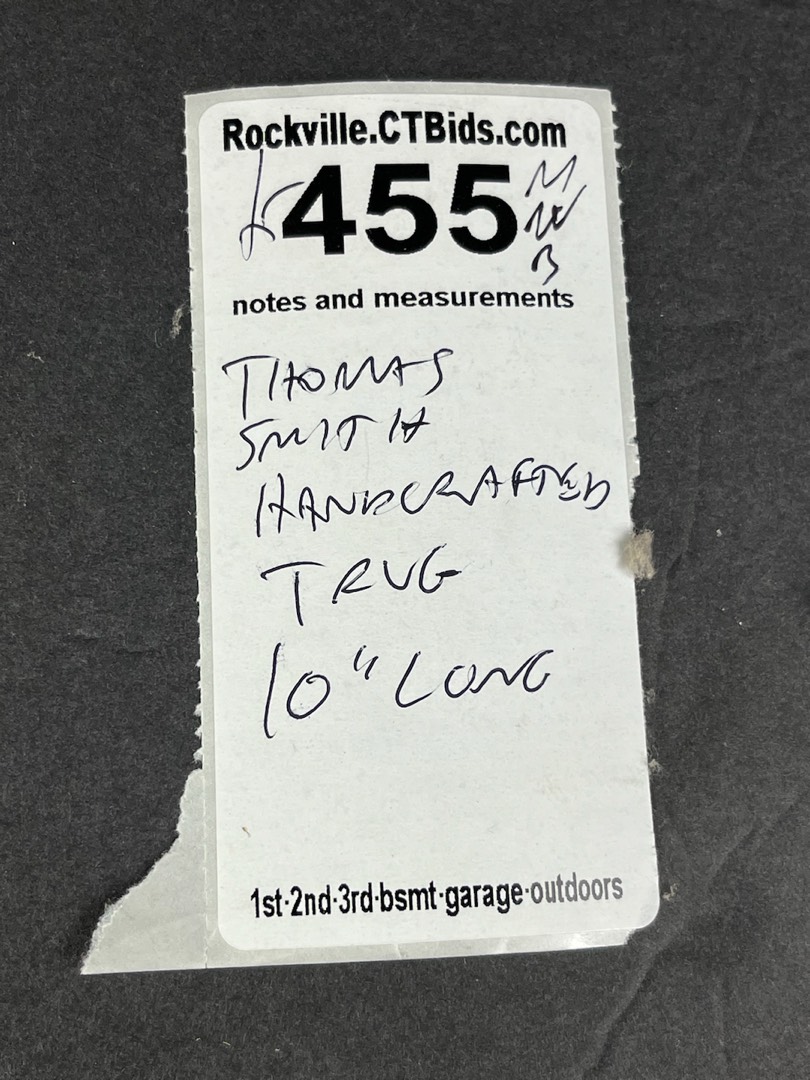 Rockville.CTBids.com
455
notes and measurements
THOMAS
SMITH
HANDCRAFTED
TRUG
10" LONG
1st·2nd·3rd·bsmt·garage·outdoors